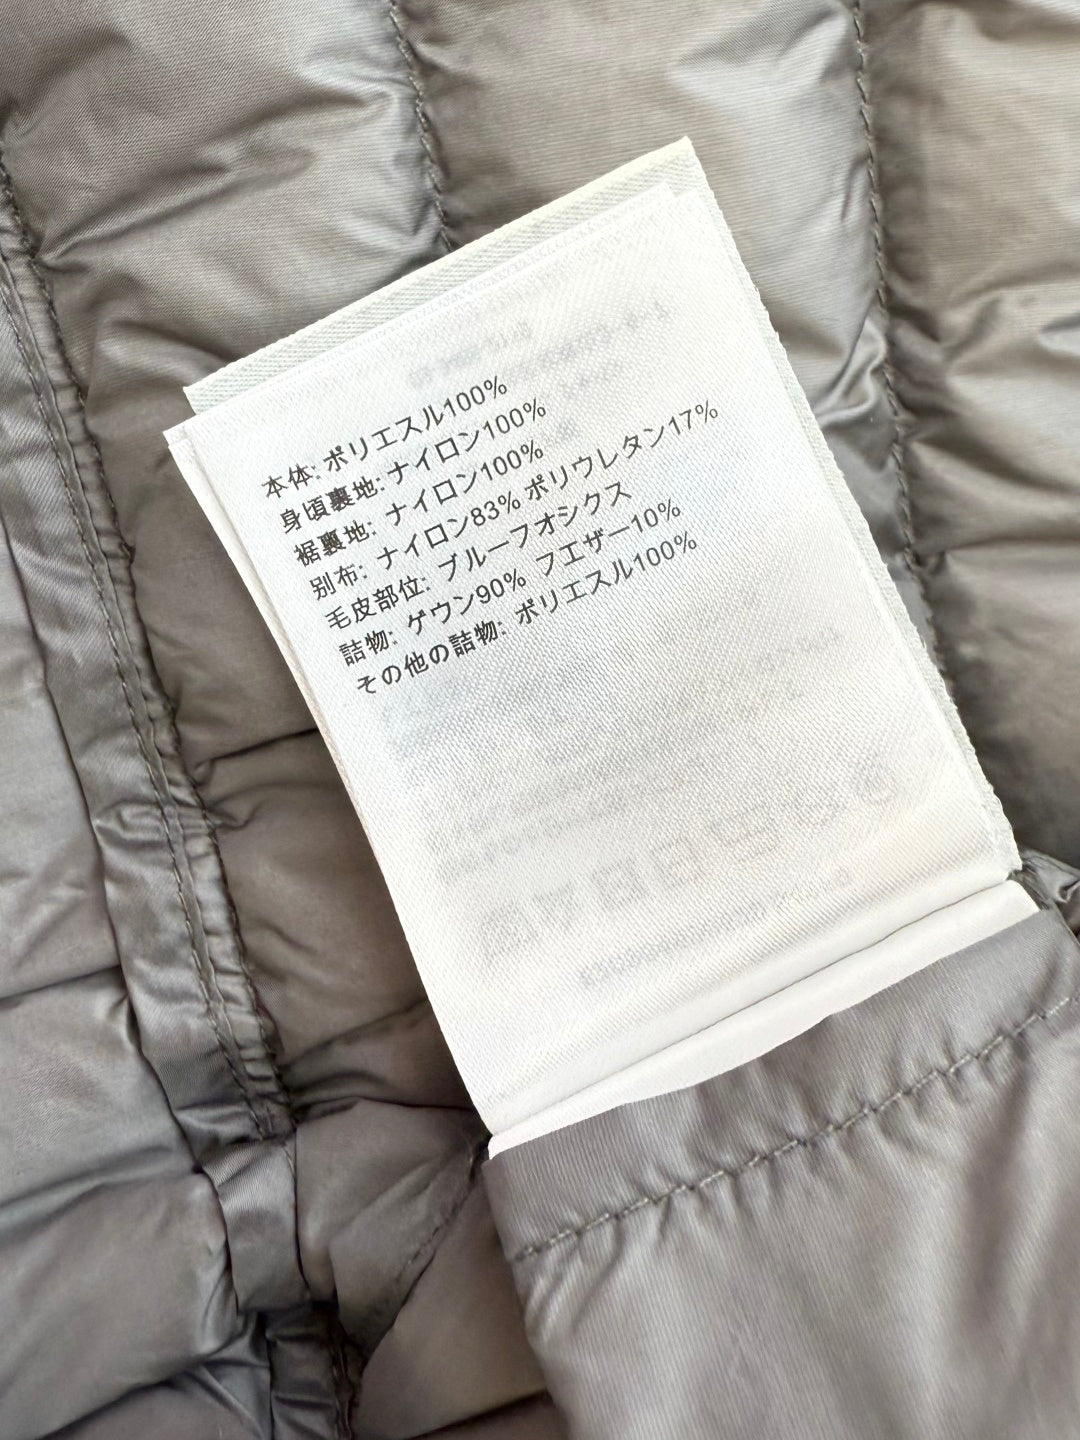 本体: ポリエスル100%
身頃裏地: ナイロン100%
裾裏地: ナイロン100%
別布: ナイロン83% ポリウレタン17%
毛皮部位: ブルーフオシクス
詰物: ゲウン90% フエザー10%
その他の詰物: ポリエスル100%